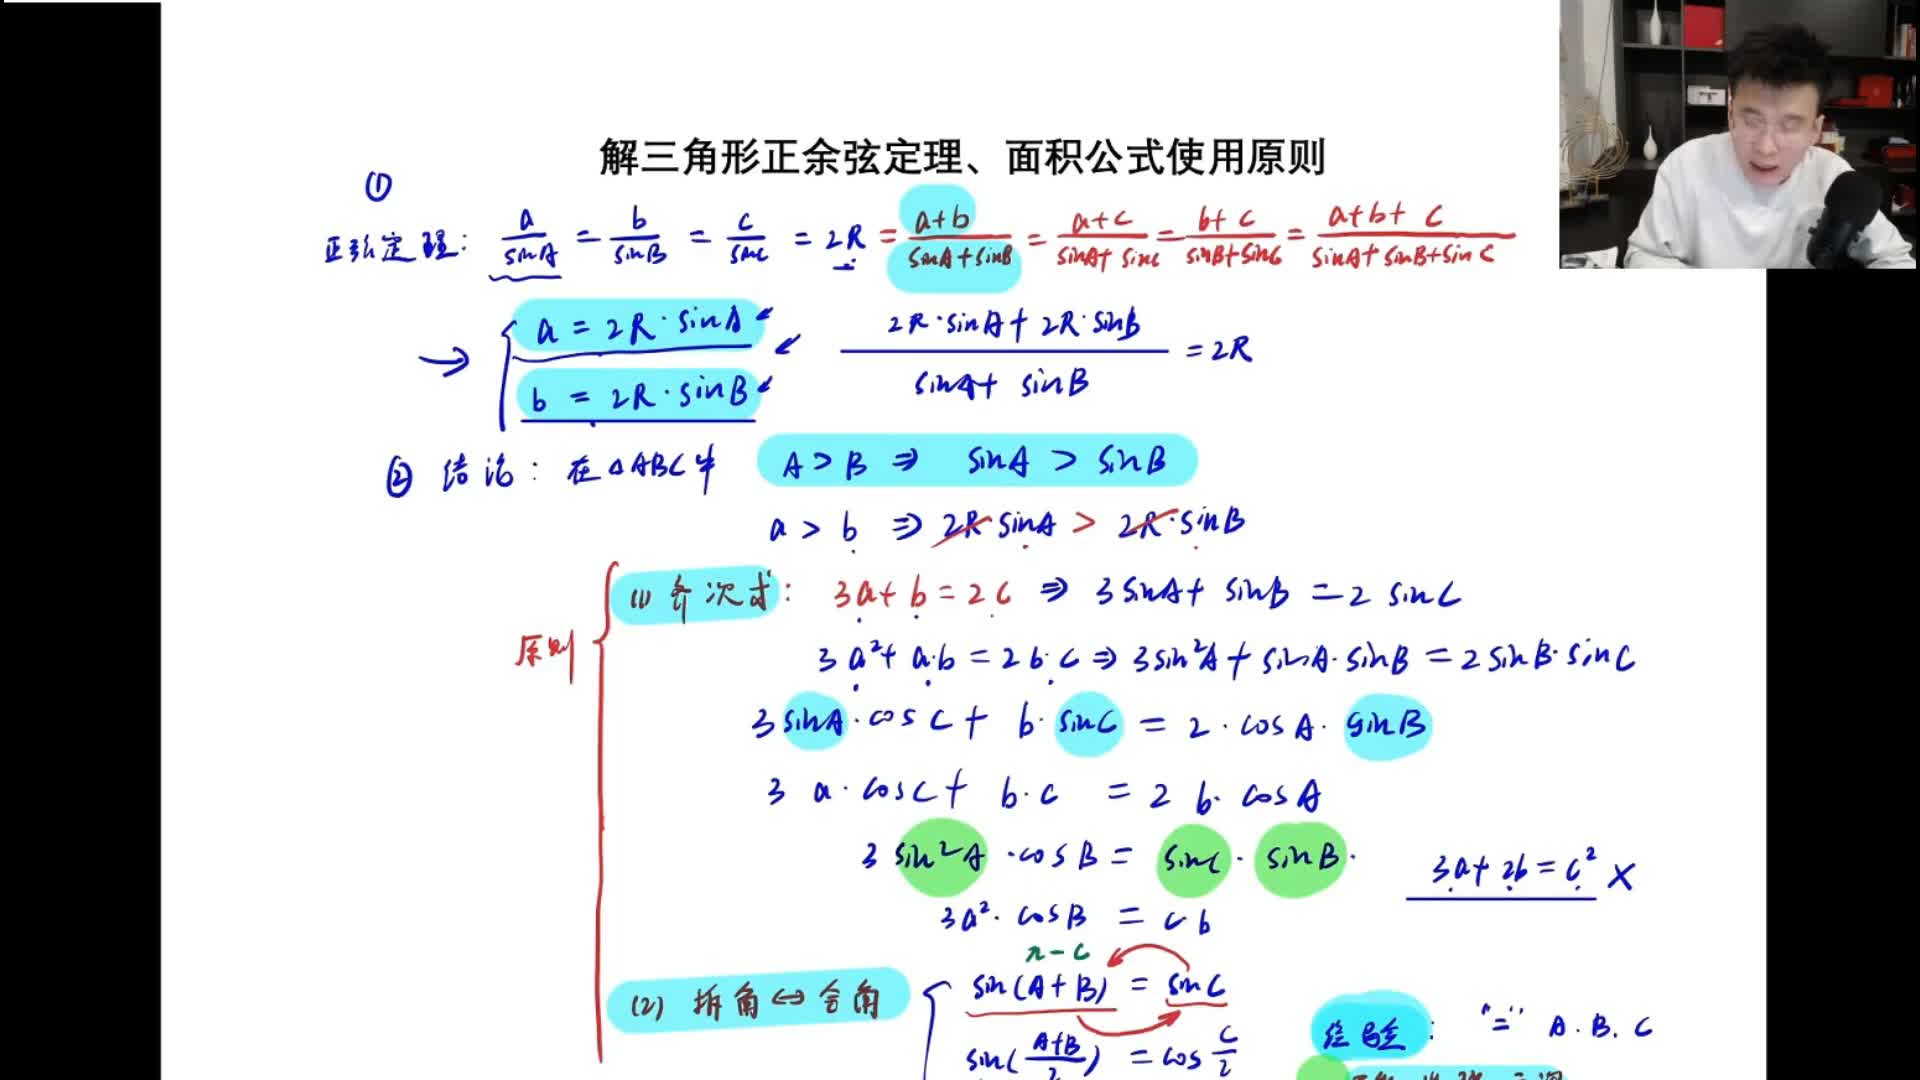 解三角形正余弦定理、面积公式使用原则
①
正弦定理: a/sinA = b/sinB = c/sinC = 2R = a+b/sinA+sinB = a+c/sinA+sinC = b+c/sinB+sinC = a+b+c/sinA+sinB+sinC
→ { a = 2R·sinA
b = 2R·sinB
2R·sinA + 2R·sinB / sinA + sinB = 2R
② 结论: 在△ABC中 A > B ⇒ sinA > sinB
a > b ⇒ 2R·sinA > 2R·sinB
原则
(1) 齐次式: 3a + b = 2c ⇒ 3sinA + sinB = 2 sinC
3a²+ a·b = 2b·c ⇒ 3sin²A + sinA·sinB = 2sinB·sinC
3 sinA·cosC + b·sinC = 2·cosA·sinB
3 a·cosC + b·c = 2 b·cosA
3 sin²A·cosB = sinC·sinB·
3a + 2b = c² ×
3a²·cosB = cb
π-C
(2) 拆角⇔合角
sin(A+B) = sinC
sin(A+B/2) = cos C/2
经验: "=" A.B.C